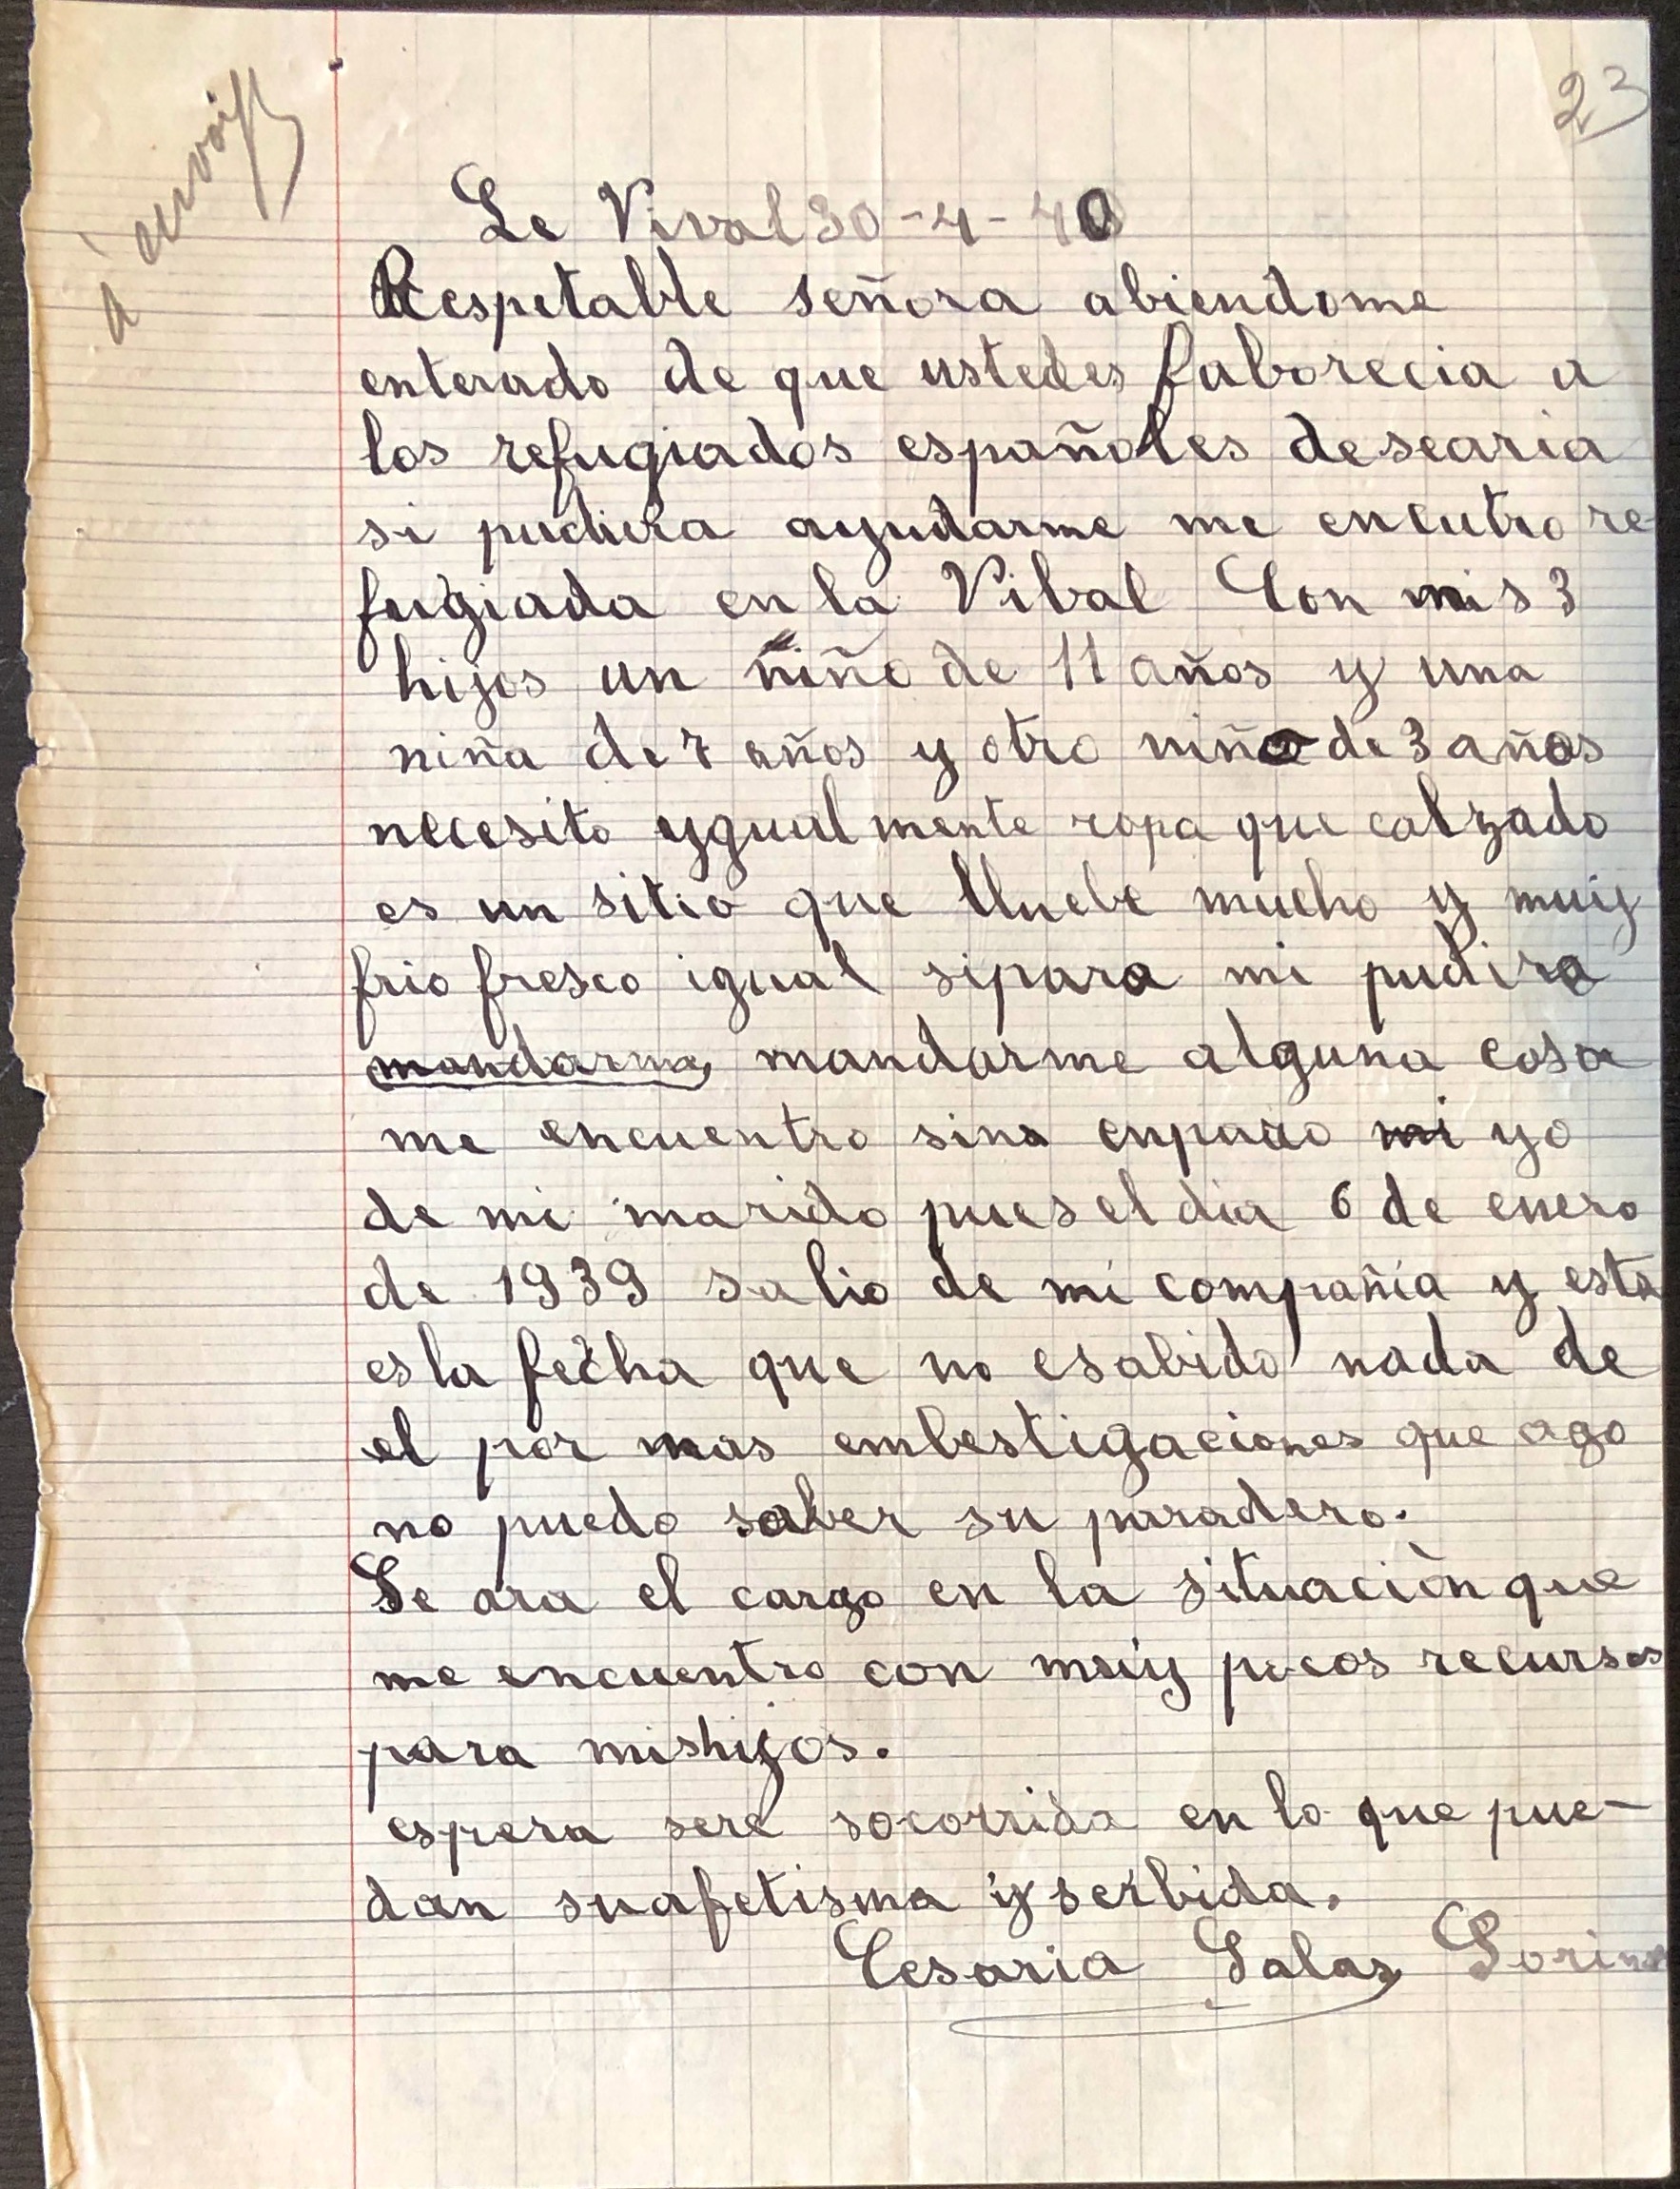 23
à envoi
Le Vival 30-4-40
Respetable señora abiendome
enterado de que ustedes faborecia a
los refugiados españoles desearia
si pudiera ayudarme me encutro re-
fugiada en la Vibal Con mis 3
hijos un niño de 11 años y una
niña de 7 años y otro niño de 3 años
necesito ygualmente ropa que calzado
es un sitio que lluebe mucho y muiy
frio fresco igual sipara mi pudira
mandarme mandarme alguna cosa
me encuentro sina enparo mi yo
de mi marido pues el dia 6 de enero
de 1939 salio de mi compañia y esta
es la fecha que no esabido nada de
el por mas embestigaciones que ago
no puedo saber su paradero.
Se ara el cargo en la situaciòn que
me encuentro con muiy pocos recursos
para mishijos.
espera seré socorrida en lo que pue-
dan suafetisma y serbida.
Cesaria Salas Sorina